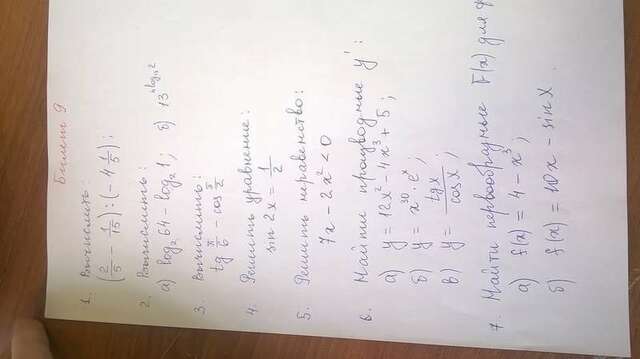 Билет 9
1. Вычислить:
(2/5 - 1/15) : (-4 1/5);
2. Вычислить:
а) log₂ 64 - log₂ 1; б)
3. Вычислить:
tg π/6 - cos π/2
4. Решить уравнение:
sin 2x = 1/2
5. Решить неравенство:
7x - 2x² < 0
6. Найти производные y':
а) y = 12x² - 4x³ + 5;
б) y = x³⁰ · eˣ;
в) y = tg x / cos x;
7. Найти первообразные F(x) для
а) f(x) = 4 - x³
б) f(x) = 10x - sin x